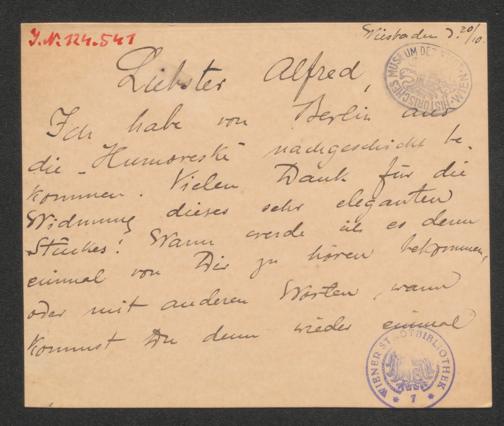 J.N. 124.541
Wiesbaden d. 20/10.
HISTORISCHES MUSEUM DER STADT WIEN
Liebster Alfred,
Ich habe von Berlin aus
die „Humoreske" nachgeschickt be-
kommen. Vielen Dank für die
Widmung dieses sehr eleganten
Stückes! Wann werde ich es denn
einmal von Dir zu hören bekommen,
oder mit anderen Worten, wann
kommst Du denn wieder einmal
WIENER STADTBIBLIOTHEK
* 7 *